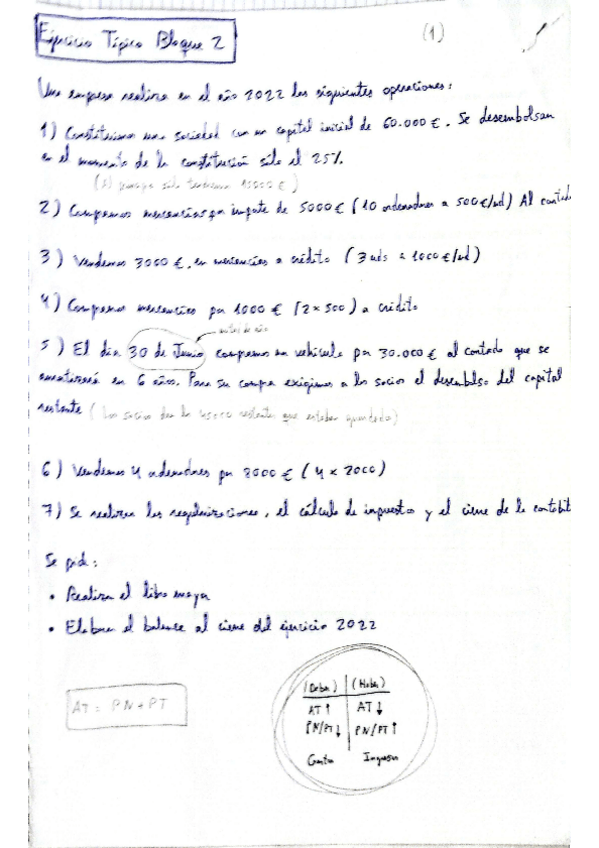 Ejercicio Típico Bloque 2
(1)
Una empresa realiza en el año 2022 las siguientes operaciones:
1) Constituimos una sociedad con un capital inicial de 60.000 €. Se desembolsan
en el momento de la constitución sólo el 25%.
(Al principio sólo tendremos 15000 €)
2) Compramos mercancías por importe de 5000 € (10 ordenadores a 500€/ud) Al contado
3) Vendemos 3000 €, en mercancías a crédito (3 uds a 1000 €/ud)
4) Compramos mercancías por 1000 € (2 x 500) a crédito
mitad de año
5) El día 30 de Junio compramos un vehículo por 30.000 € al contado que se
amortizará en 6 años. Para su compra exigimos a los socios el desembolso del capital
restante (Los socios dan los 45000 restantes que estaban apuntados)
6) Vendemos 4 ordenadores por 8000 € (4 x 2000)
7) Se realizan las regularizaciones, el cálculo de impuestos y el cierre de la contabil
Se pide:
• Realiza el libro mayor
• Elabora el balance al cierre del ejercicio 2022
AT = PN + PT
(Debe) (Haber)
AT ↑ AT ↓
PN/PT ↓ PN/PT ↑
Gastos Ingresos